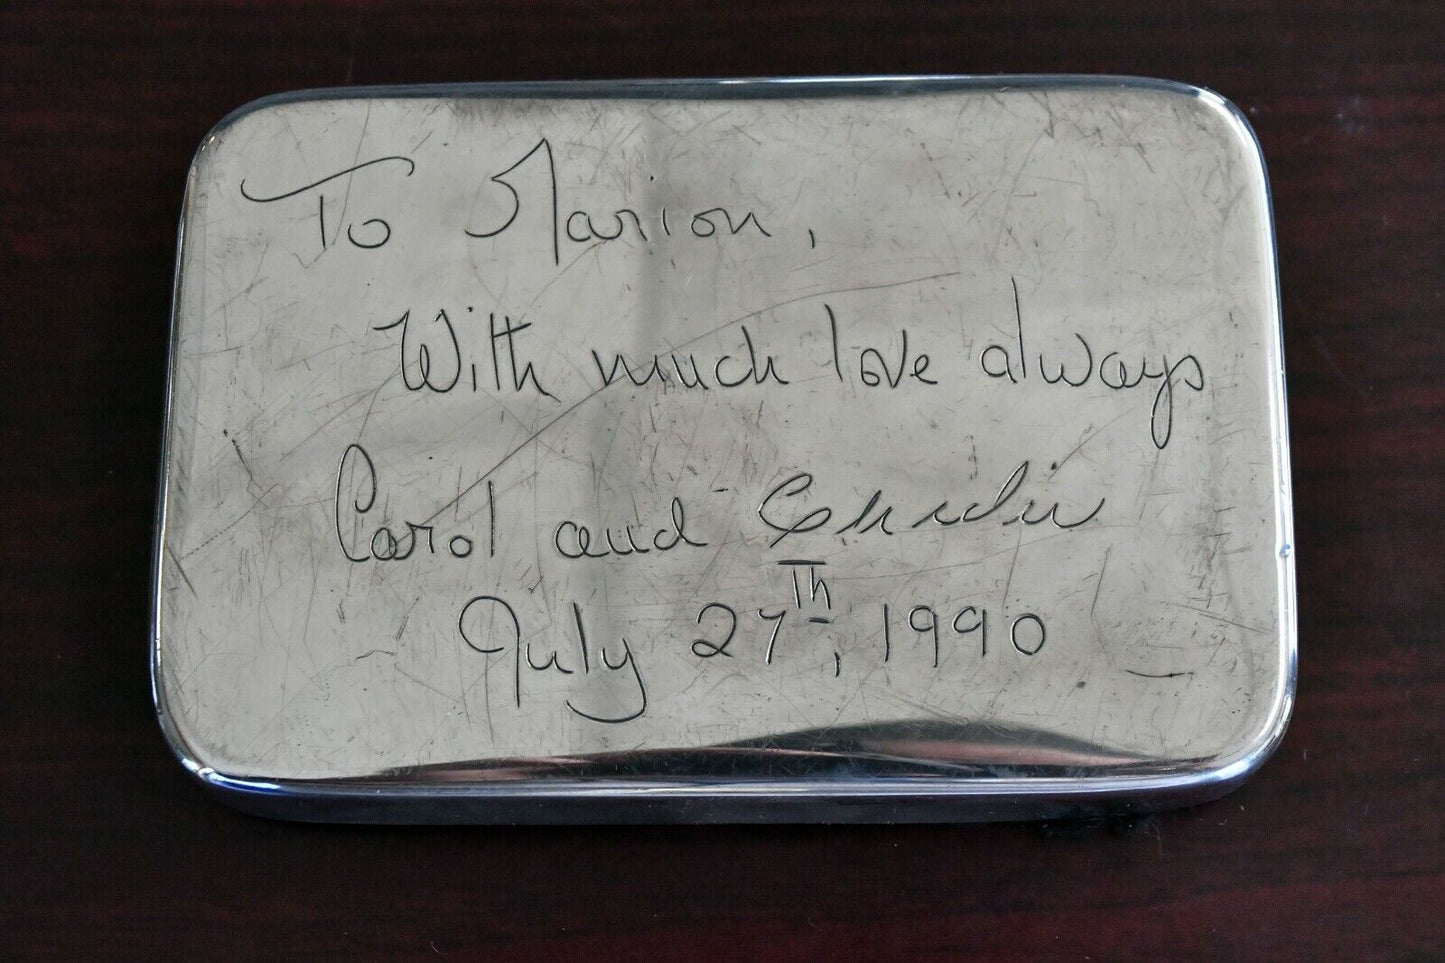 To Marion,
With much love always
Carol and
July 27Th, 1990